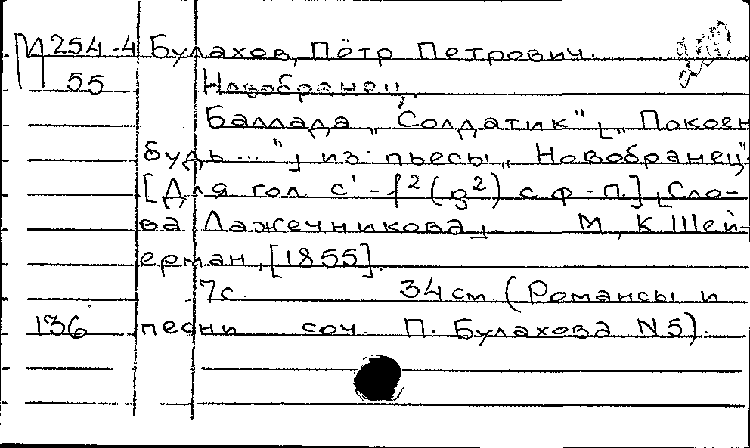 М 254-4 Булахов, Пётр Петрович.
55 Новобранец.
Баллада „Солдатик" [„Покоен
будь..."] из пьесы „Новобранец"
[Для гол. c¹-f²(g²) с ф-п.] [Сло-
ва Лажечникова] М., К. Шей-
ерман, [1855].
7с. 34см (Романсы и
136 песни соч. П. Булахова N5).